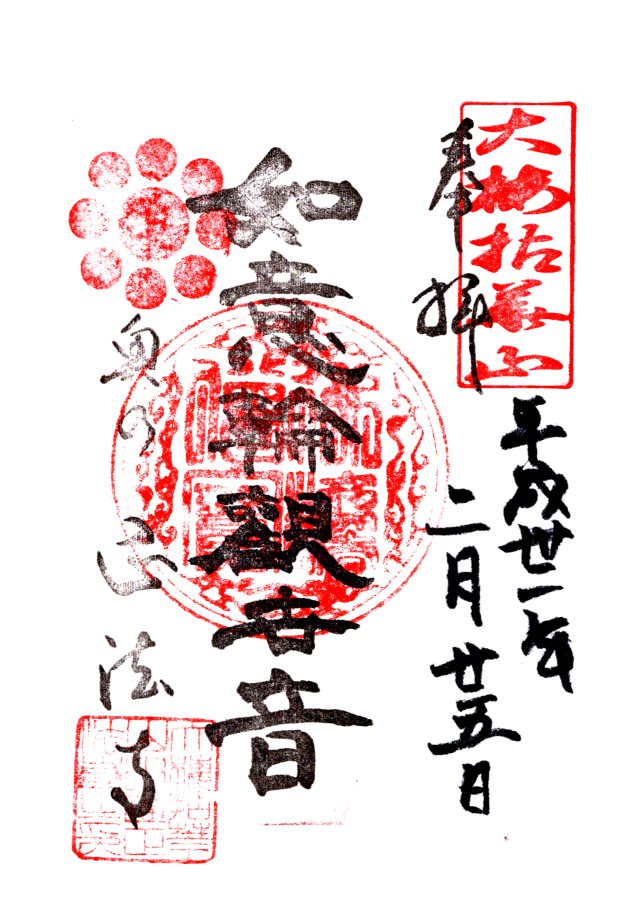 大梅拈華山
奉拝
平成丗一年
二月廿五日
如意輪觀世音
奥の正法寺